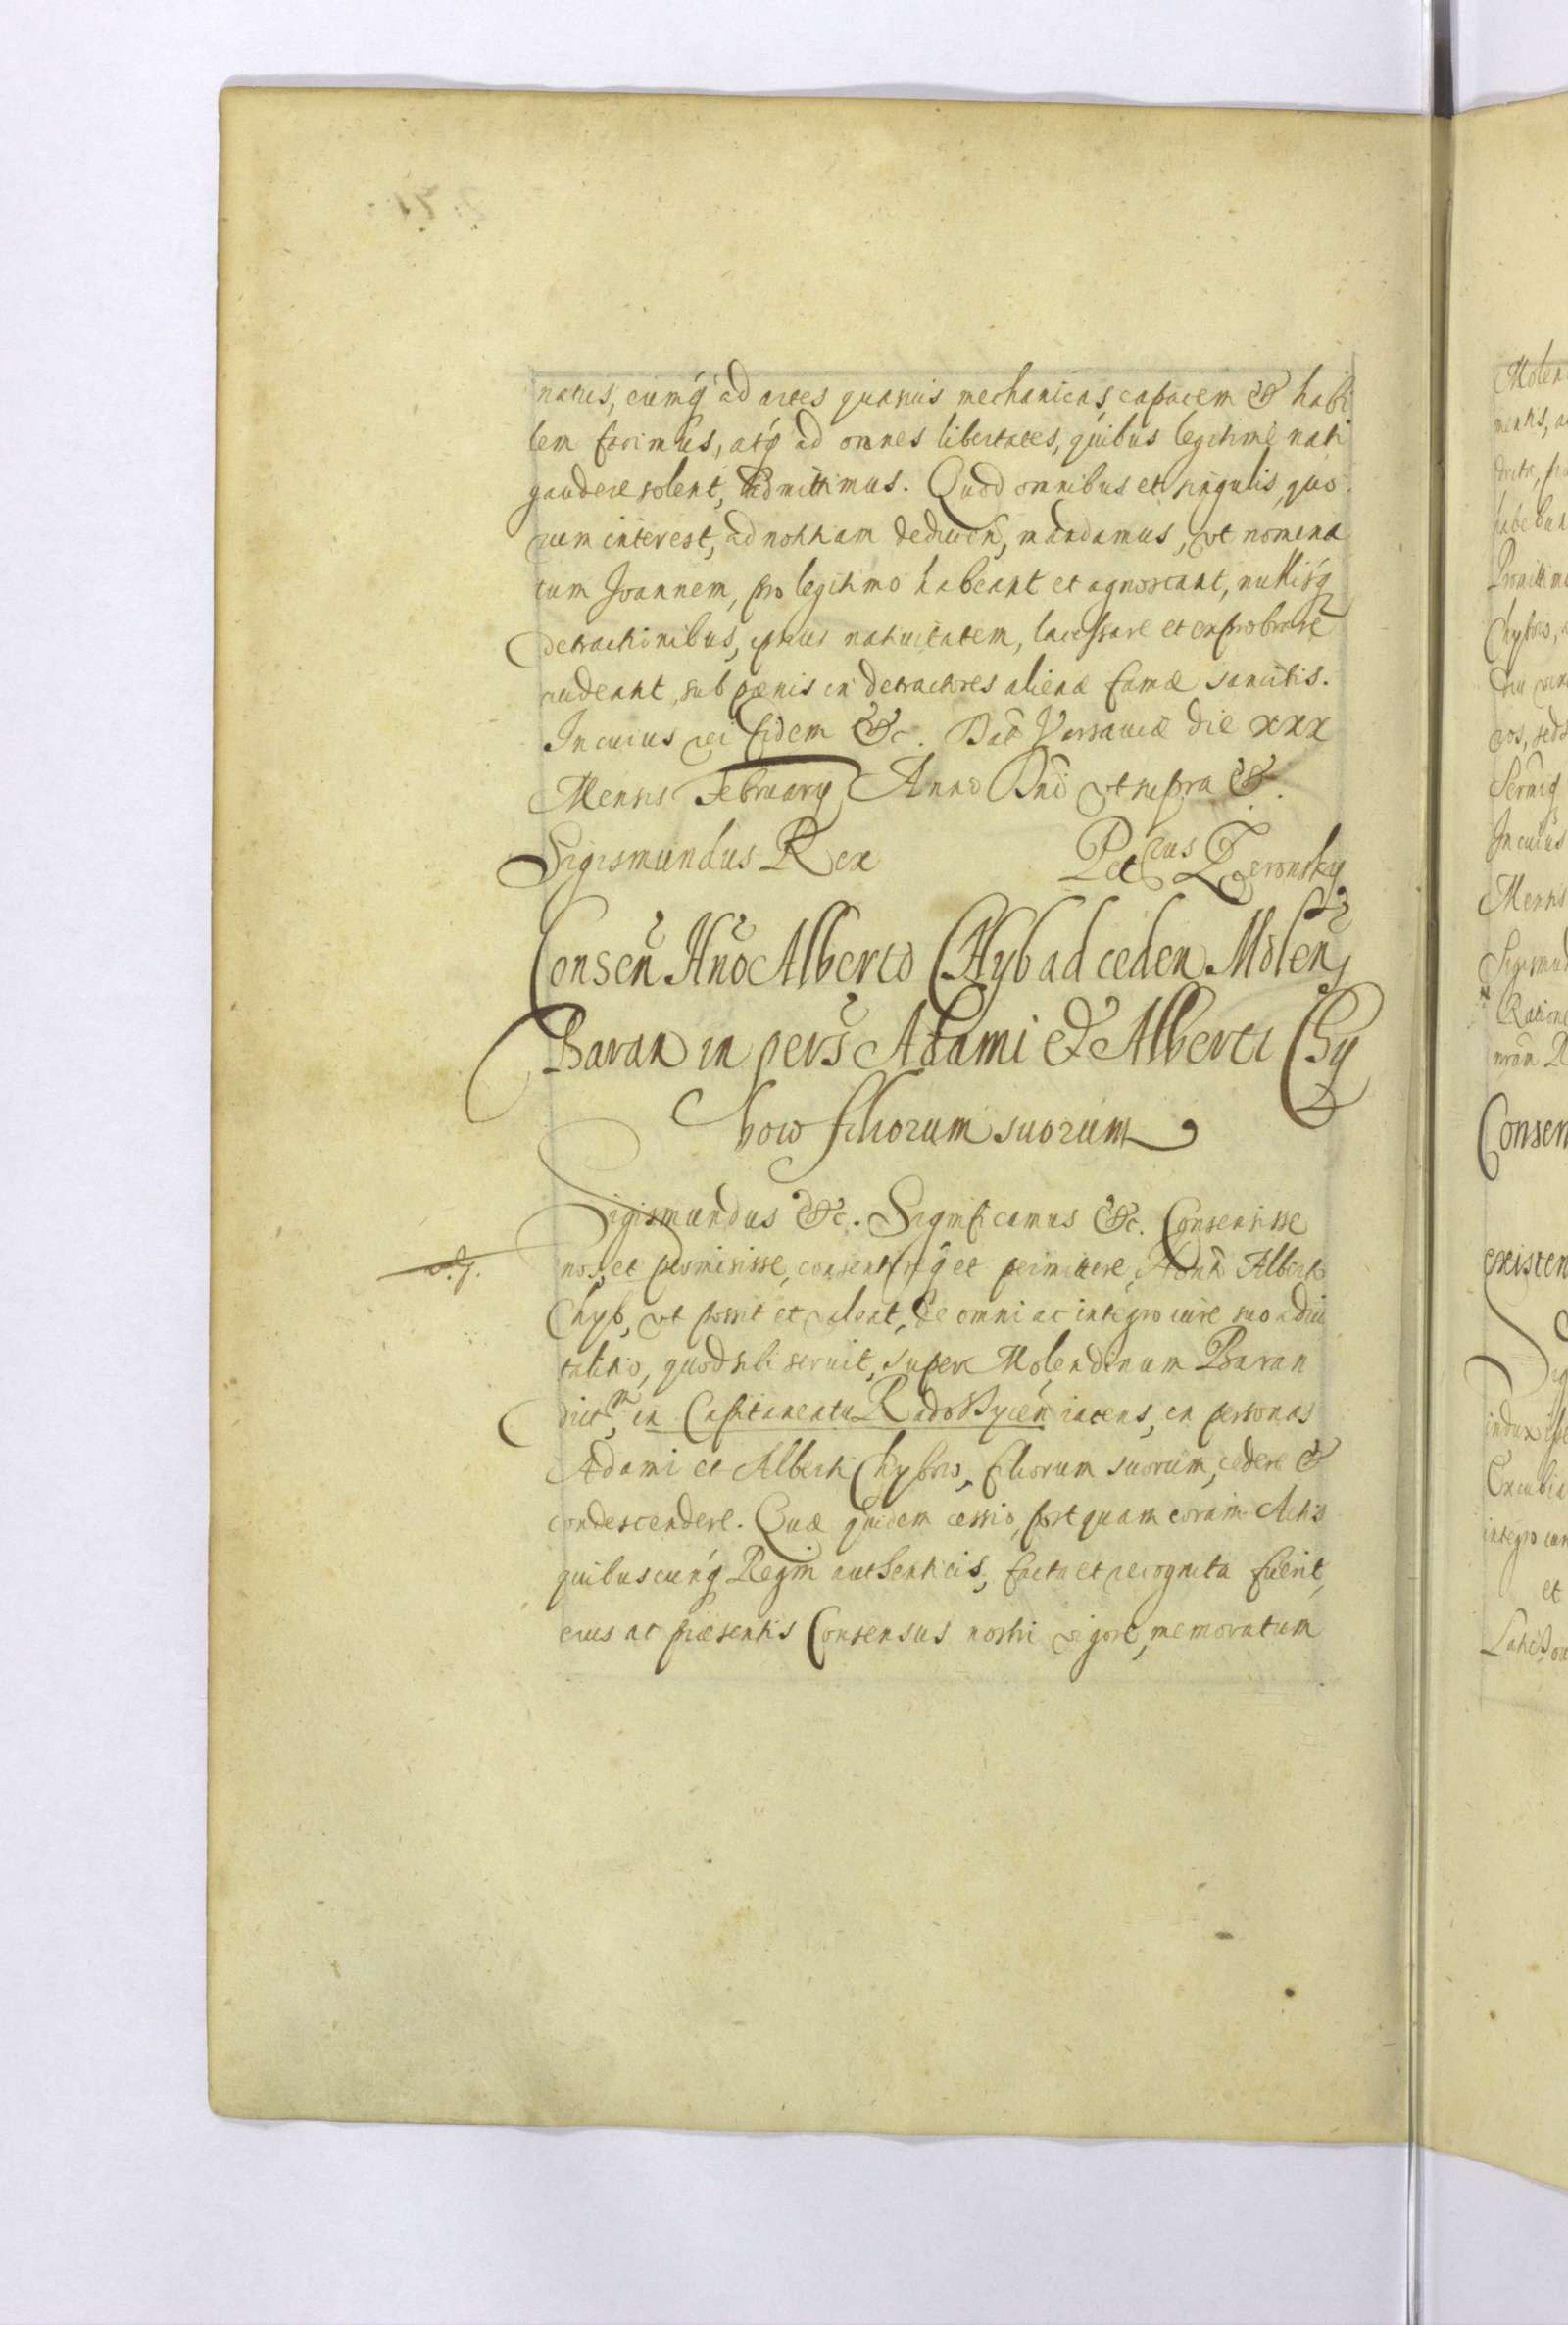 natus, eumq́ ad artes quasuis mechanicas, capacem & habi
lem facimus, atq́ ad omnes libertates, quibus legitimè nati
gaudere solent, admittimus. Quod omnibus et singulis, quo
rum interest, ad notitiam deducen̄, mandamus, vt nomina
tum Joannem, pro legitimo habeant et agnoscant, nullisq́
detractionibus, ipsius natiuitatem, lacessare et exprobrare
audeant, sub pænis in detractores alienæ famæ sancitis.
In cuius rei fidem &c. Dat̄ Varsauiæ die XXX
Mensis February Anno Dn̄i vt supra &.
Sigismundus Rex
Petrus Żeronsky
Consen̄ Hn̄o Alberto Chyb ad ceden Molen
Baran in pers̄ Adami & Alberti Chy
bow filiorum suorum
Sigismundus &c. Significamus &c. Consensisse
nos, et permisisse, consentireq́ et permittere, Hon̄ Alberto
Chyb, vt possit et valeat, de omni ac integro iure suo adui
talitio, quod sibi seruit, super Molendinum Baran
dictm, in Capitaneatu Radoszycen̄ iacens, in personas
Adami et Alberti Chybow, filiorum suorum, cedere &
condescendere. Quæ quidem cessio, postquam coram Actis
quibuscunq́ Regni authenticis, facta et recognita fuerit,
eius ac præsentis Consensus nostri vigore, memoratum
Molen
Consen
existen
integro iur
et